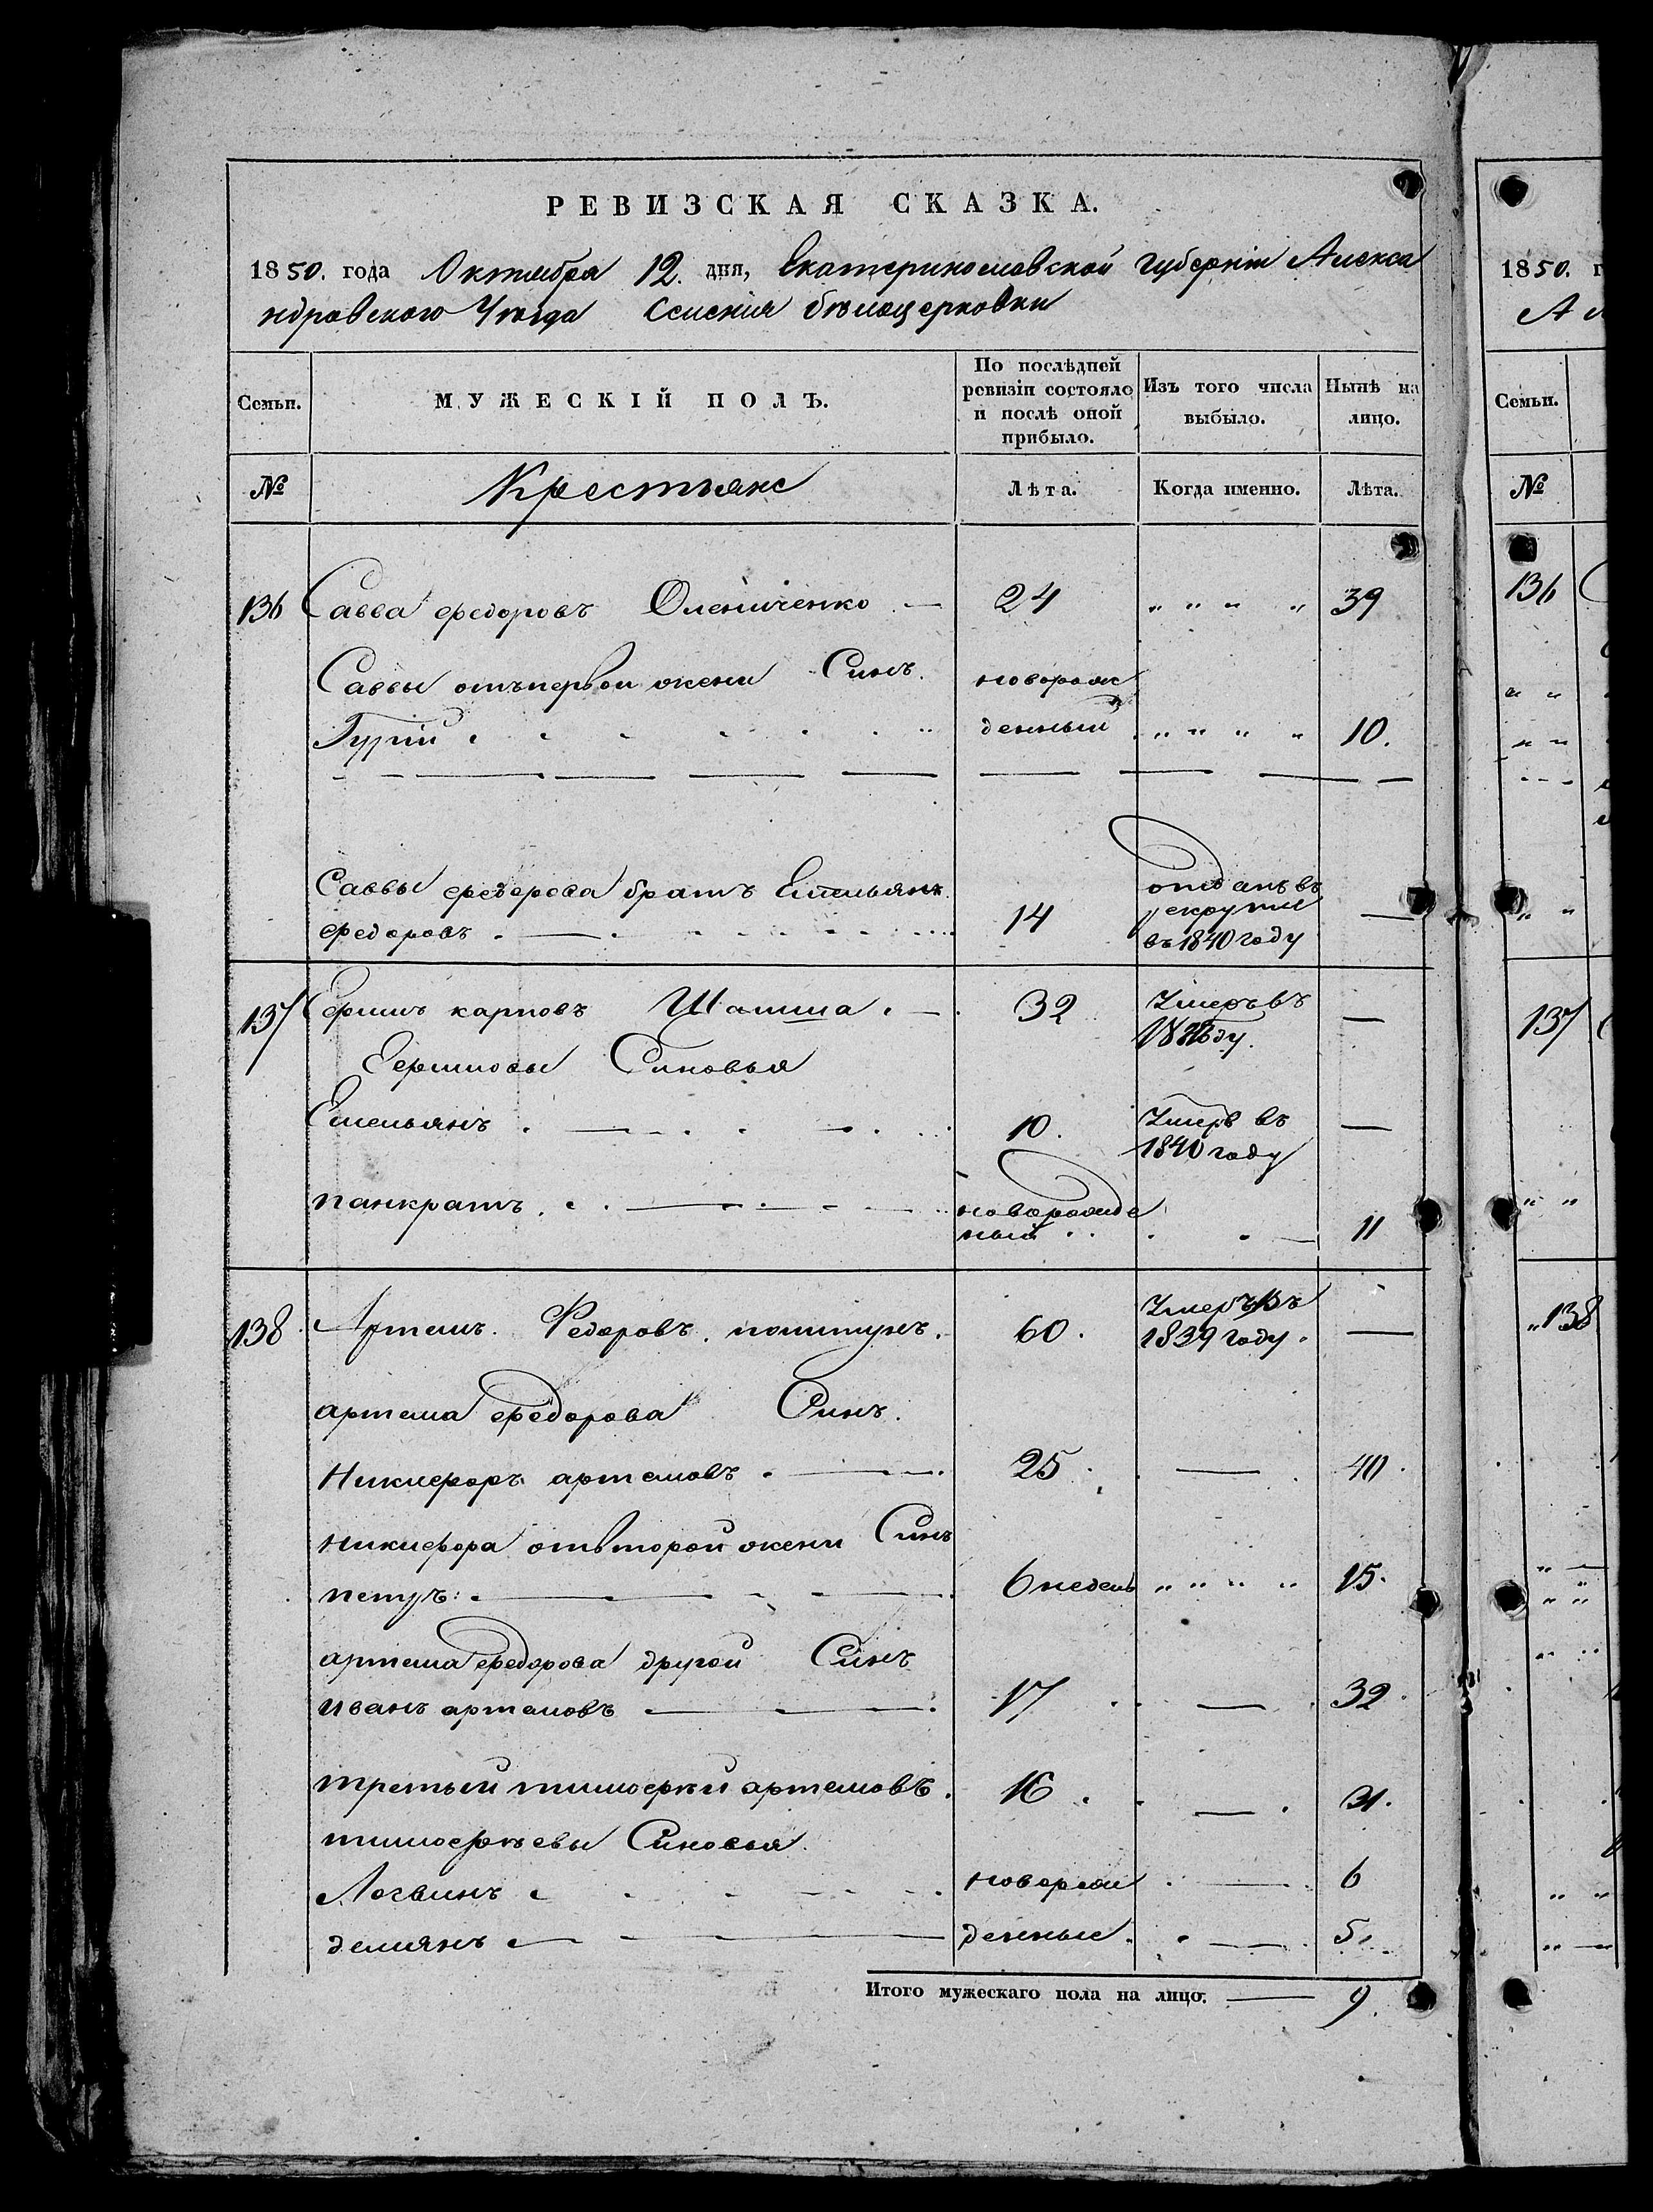 РЕВИЗСКАЯ СКАЗКА.
1850. года Октября 12. дня, Екатеринославской губерніи Алекса
ндровского Уезда Селения белоцерковки
Семьи. МУЖЕСКІЙ ПОЛЪ. По послѣдней ревизіи состояло и послѣ оной прибыло. Изъ того числа выбыло. Нынѣ на лицо.
№ Крестьяне Лѣта. Когда именно. Лѣта.
136 Савва федоровъ Оленiченко — 24 " " " " 39
Саввы отъпервои жени Синъ. новорож
Гурiи денный " " " " 10.
Саввы федорова братъ Емельянъ отданъ въ
федоровъ 14 рекрути —
въ 1840 году
137 карповъ 32 Умеръ въ —
Синовья
Емельянъ 10. Умеръ въ —
1840 году
панкратъ новорожде
ный 11
138 Артемъ. Федоровъ. 60. Умеръ Въ
1839 году. —
артема федорова Синъ.
Никифоръ артемовъ 25 — 40.
никифора отвторой жени Синъ
петръ: 6 недель " " " " 15.
артема федорова другой Синъ
иванъ артемовъ 17 — 32.
третьи тимофей артемовъ. 16. — 31.
тимофѣевы Синовья.
Логвинъ новорож — 6
демянъ денные. — 5.
Итого мужескаго пола на лицо. — 9.
1850. г
А
Семьи.
№
136
137
138